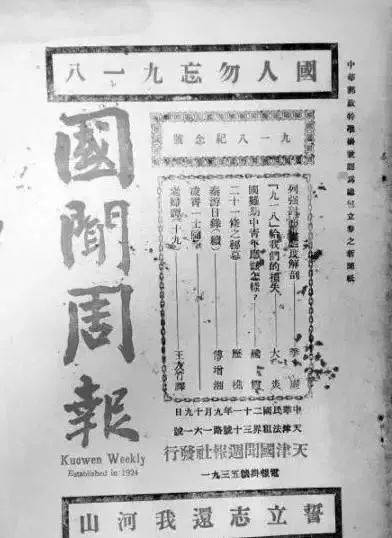 國人勿忘九一八
中華郵政特准掛號認爲總包立券之新聞紙
九一八紀念號
列強 態度解剖 李
「九一八」給我們的損失 大炎
國難期中青年應該怎樣?
二十一條之秘幕 歷樵
秦游日錄(續) 傅增湘
凌霄一士隨筆
老婦譚(十九) 王友竹譯
中華民國二十一年九月十九日
天津法租界三十號路一六一號
天津國聞週報社發行
電報掛號五三九一
國聞周報
Kuowen Weekly
Established in 1924
誓立志還我河山